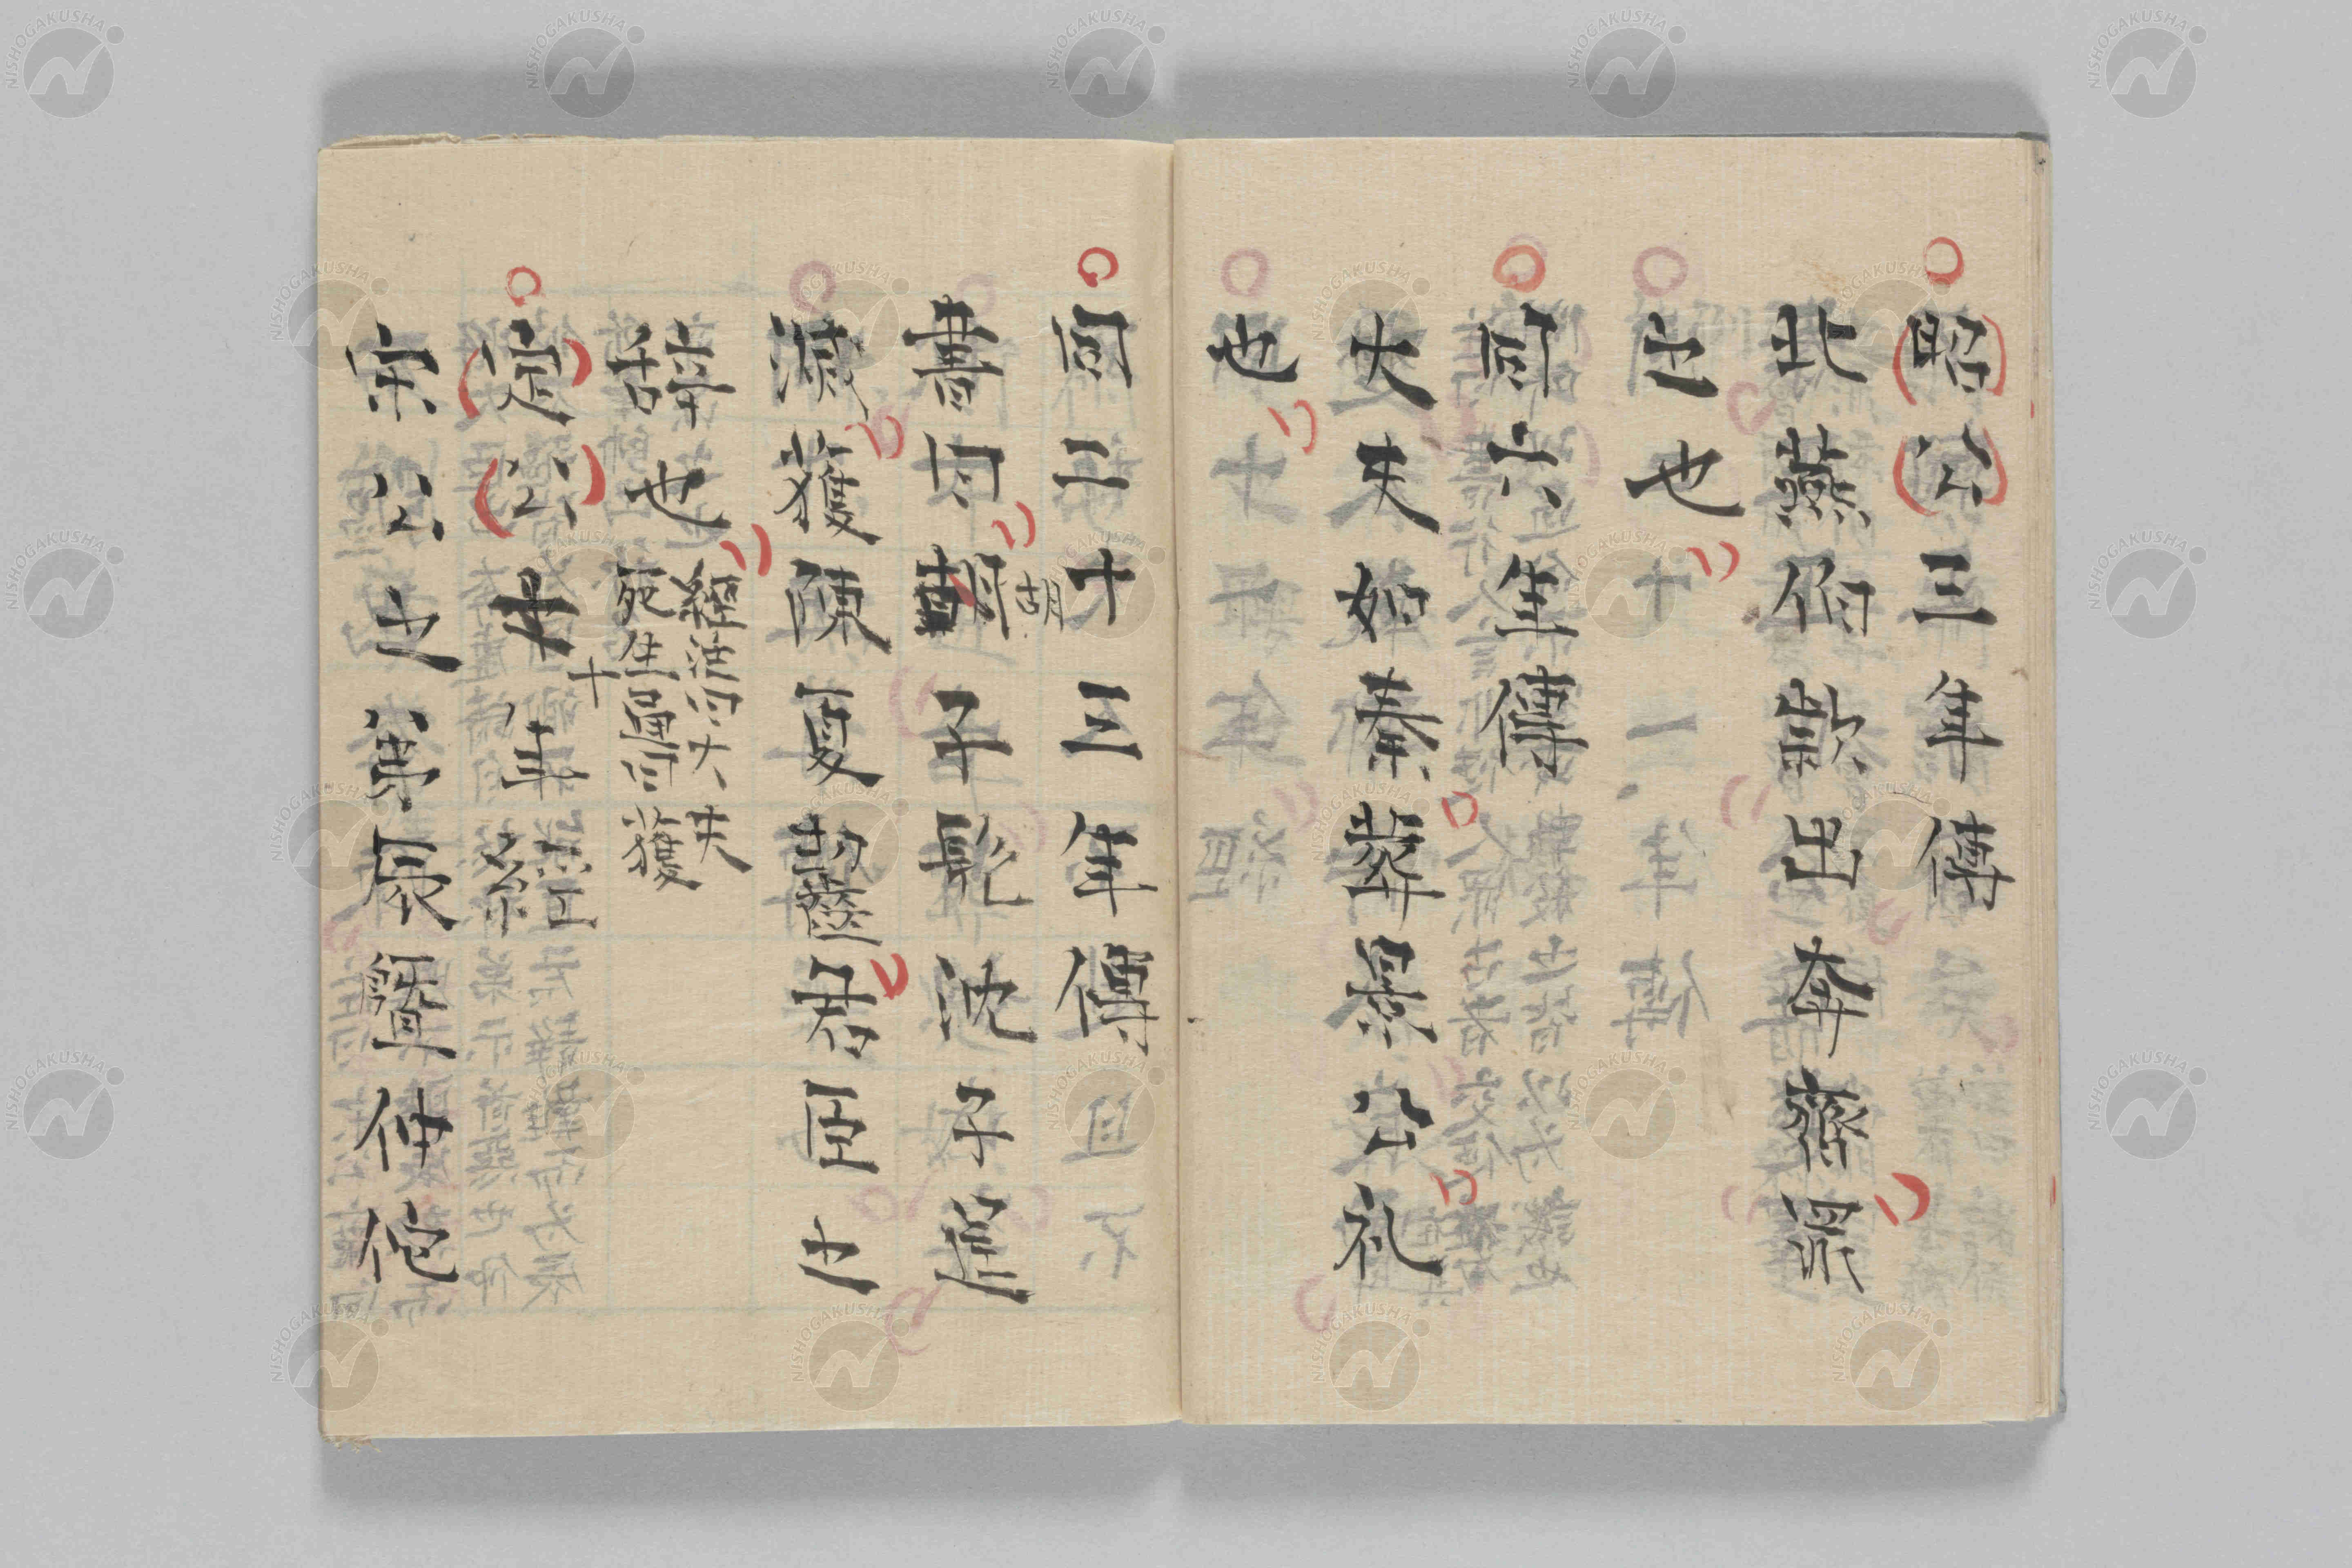 昭公三年傳
北燕伯欵出奔齊罪
之也
同六年傳
大夫如秦葬景公礼
也
同二十三年傳
書曰胡子髡沈子逞
滅獲陳夏齧君臣之
辞也經注曰大夫
死生通曰獲
定公十年經
宋公之弟辰曁仲佗